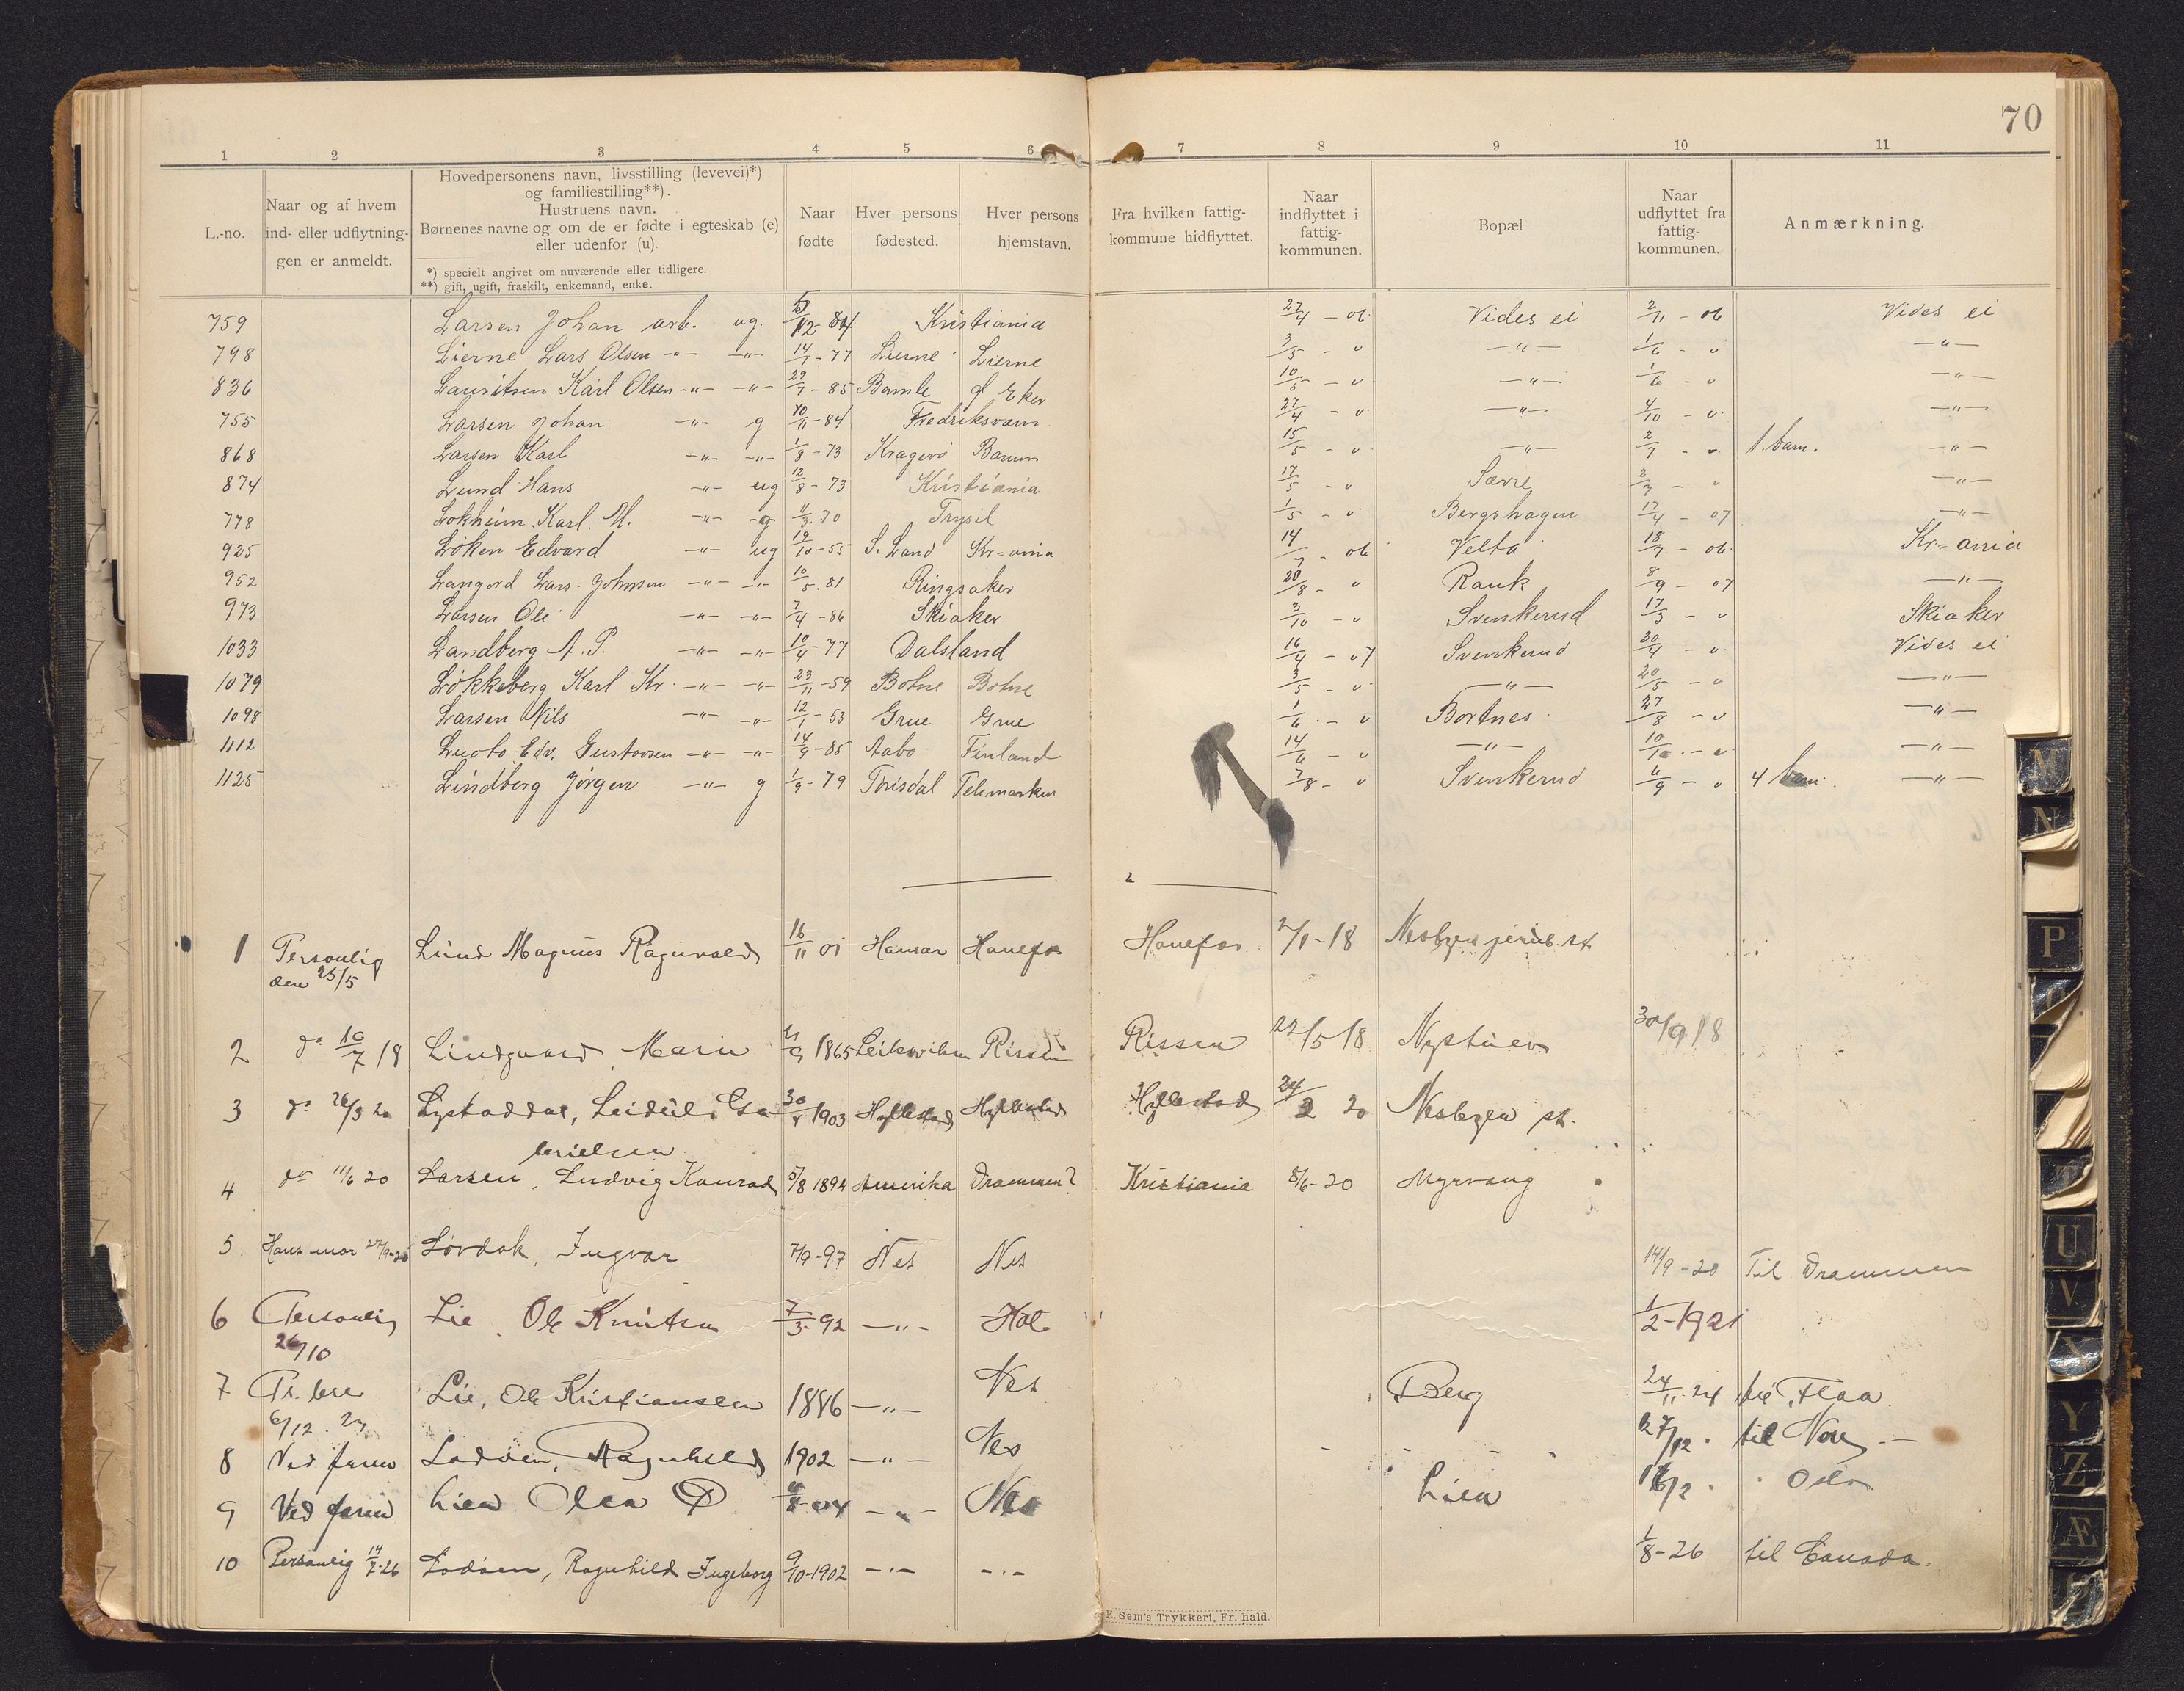 70
1 2 3 4 5 6 7 8 9 10 11
L.-no.
Naar og af hvem
ind- eller udflytnin-
gen er anmeldt.
Hovedpersonens navn, livsstilling (levevei)*)
og familiestilling**).
Hustruens navn.
Børnenes navne og om de er fødte i egteskab (e)
eller udenfor (u).
*) specielt angivet om nuværende eller tidligere.
**) gift, ugift, fraskilt, enkemand, enke.
Naar
fødte
Hver persons
fødested.
Hver persons
hjemstavn.
Fra hvilken fattig-
kommune hidflyttet.
Naar
indflyttet i
fattig-
kommunen.
Bopæl
Naar
udflyttet fra
fattig-
kommunen.
Anmærkning.
759 Larsen Johan arb. ug. Kristiania 27/4 - 06 Vides ei 2/11 - 06 Vides ei
798 Lierne Lars Olsen -"- -"- 14/1 - 77 Lierne Lierne 3/5 - " -"- 1/6 - " -"-
836 Lauritsen Karl Olsen -"- -"- 29/7 - 85 Bamle Ø. Eker 10/5 - " -"- 1/6 - " -"-
755 Larsen Johan -"- g 10/11 - 84 Fredriksværn 27/4 - " -"- 4/10 - " -"-
868 Larsen Karl -"- -"- 1/8 - 73 Kragerø 15/5 - " -"- 2/7 - " 1 barn. -"-
874 Lund Hans -"- ug 12/8 - 73 Kristiania 17/5 - " Sævre 2/7 - " -"-
778 Løkheim Karl. M. -"- g 11/3 - 70 Trysil 1/5 - " Bergshagen 17/4 - 07 -"-
925 Løken Edvard -"- ug 19/10 - 55 S. Land Kr=ania 14/7 - 06 Velta 18/7 - 06 Kr=ania
952 Langerd Lars Johnsen -"- -"- 10/5 - 81 Ringsaker 20/8 - " Rauk 8/9 - 07 -"-
973 Larsen Ole -"- -"- 7/4 - 86 Skiaker 3/10 - " Svenkerud 17/5 - " Skiaker
1033 Landberg A. P. -"- -"- 10/4 - 77 Dalsland 16/4 - 07 Svenkerud 30/4 - " Vides ei
1079 Løkkeberg Karl Kr. -"- -"- 23/11 - 59 Botne Botne 3/5 - " -"- 20/5 - " -"-
1098 Larsen Nils -"- -"- 12/1 - 53 Grue Grue 1/6 - " Bortnes 27/8 - " -"-
1112 Luoto Edv. Gustavsen -"- -"- 14/9 - 85 Aabo Finland 14/6 - " -"- 10/10 - " -"-
1125 Lindberg Jørgen -"- g 1/9 - 79 Tørisdal Telemarken 7/8 - " Svenkerud 6/9 - " 4 barn. -"-
1 Personlig Lund Magnus Ragnvald 16/11 01 Hamar Hønefos Hønefos 2/1 - 18 Nesbyen jernb. st
den 25/5
2 do 10/7 18 Lindgaard Marie 1865 Leiksviken Rissen Rissen 22/5 18 Nystuen 30/9 18
3 do 26/3 20 Lystaddal, Leidul. Ga 30/ 1903 Hyllestad Hyllestad Hyllestad 24/2 20 Nesbyen st.
brielsen
4 do 11/6 20 Larsen, Ludvig Konrad 5/8 1894 Amerika Drammen? Kristiania 8/6 - 20 Myrvang
5 Hans mor 27/9-20 Løvdok, Ingvar 7/9 - 97 Nes Nes 14/9 - 20 Til Drammen
6 Personlig Lie, Ole Knutsen 7/3 - 92 -"- Hol 1/2 - 1921
26/10
7 Pr. brev Lie, Ole Kristiansen 1886 -"- Nes Berg 24/11 24 Flaa
6/12 . 24
8 Ved faren Lodøen, Ragnhild 1902 -"- Nes 27/12 . til Nore
9 Ved faren Lien Olea P 8 - 04 -"- Nes Lien Oslo
10 Personlig 14/7-26 Lodøen, Ragnhild Ingeborg 9/10 - 1902 -"- -"- 1/8 - 26 til Canada.
E. Sem's Trykkeri, Fr. hald.
M
N
P
U
V
X
Y
Z
Æ